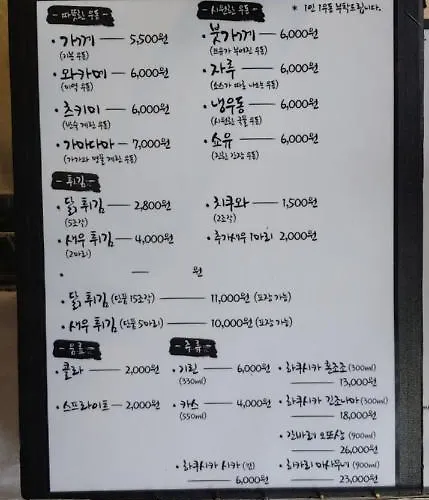 * 1인 1우동 부탁드립니다.
- 따뜻한 우동 -
• 가께 — 5,500원
(기본 우동)
• 와카메 — 6,000원
(미역 우동)
• 츠키미 — 6,000원
(반숙 계란 우동)
• 가마다마 — 7,000원
- 시원한 우동 -
• 붓가께 — 6,000원
(쯔유가 부어진 우동)
• 자루 — 6,000원
(소스가 따로 나오는 우동)
• 냉우동 — 6,000원
(시원한 국물 우동)
• 쇼유 — 6,000원
(진한 간장 우동)
- 튀김 -
• 닭 튀김 — 2,800원
(5조각)
• 새우 튀김 — 4,000원
(2마리)
• 치쿠와 — 1,500원
(2조각)
• 추가새우 1마리 2,000원
• — 원
• 닭 튀김 (단품 15조각) — 11,000원 (포장 가능)
• 새우 튀김 (단품 5마리) — 10,000원 (포장 가능)
- 음료 -
• 콜라 — 2,000원
• 스프라이트 — 2,000원
- 주류 -
• 기린 — 6,000원
(330ml)
• 카스 — 4,000원
(550ml)
• 하쿠시카 시카 (잔)
— 6,000원
• 하쿠시카 혼죠조 (300ml)
— 13,000원
• 하쿠시카 긴죠나마 (300ml)
— 18,000원
• 간바레 오또상 (900ml)
— 26,000원
• 히카리 마사무네 (900ml)
— 23,000원